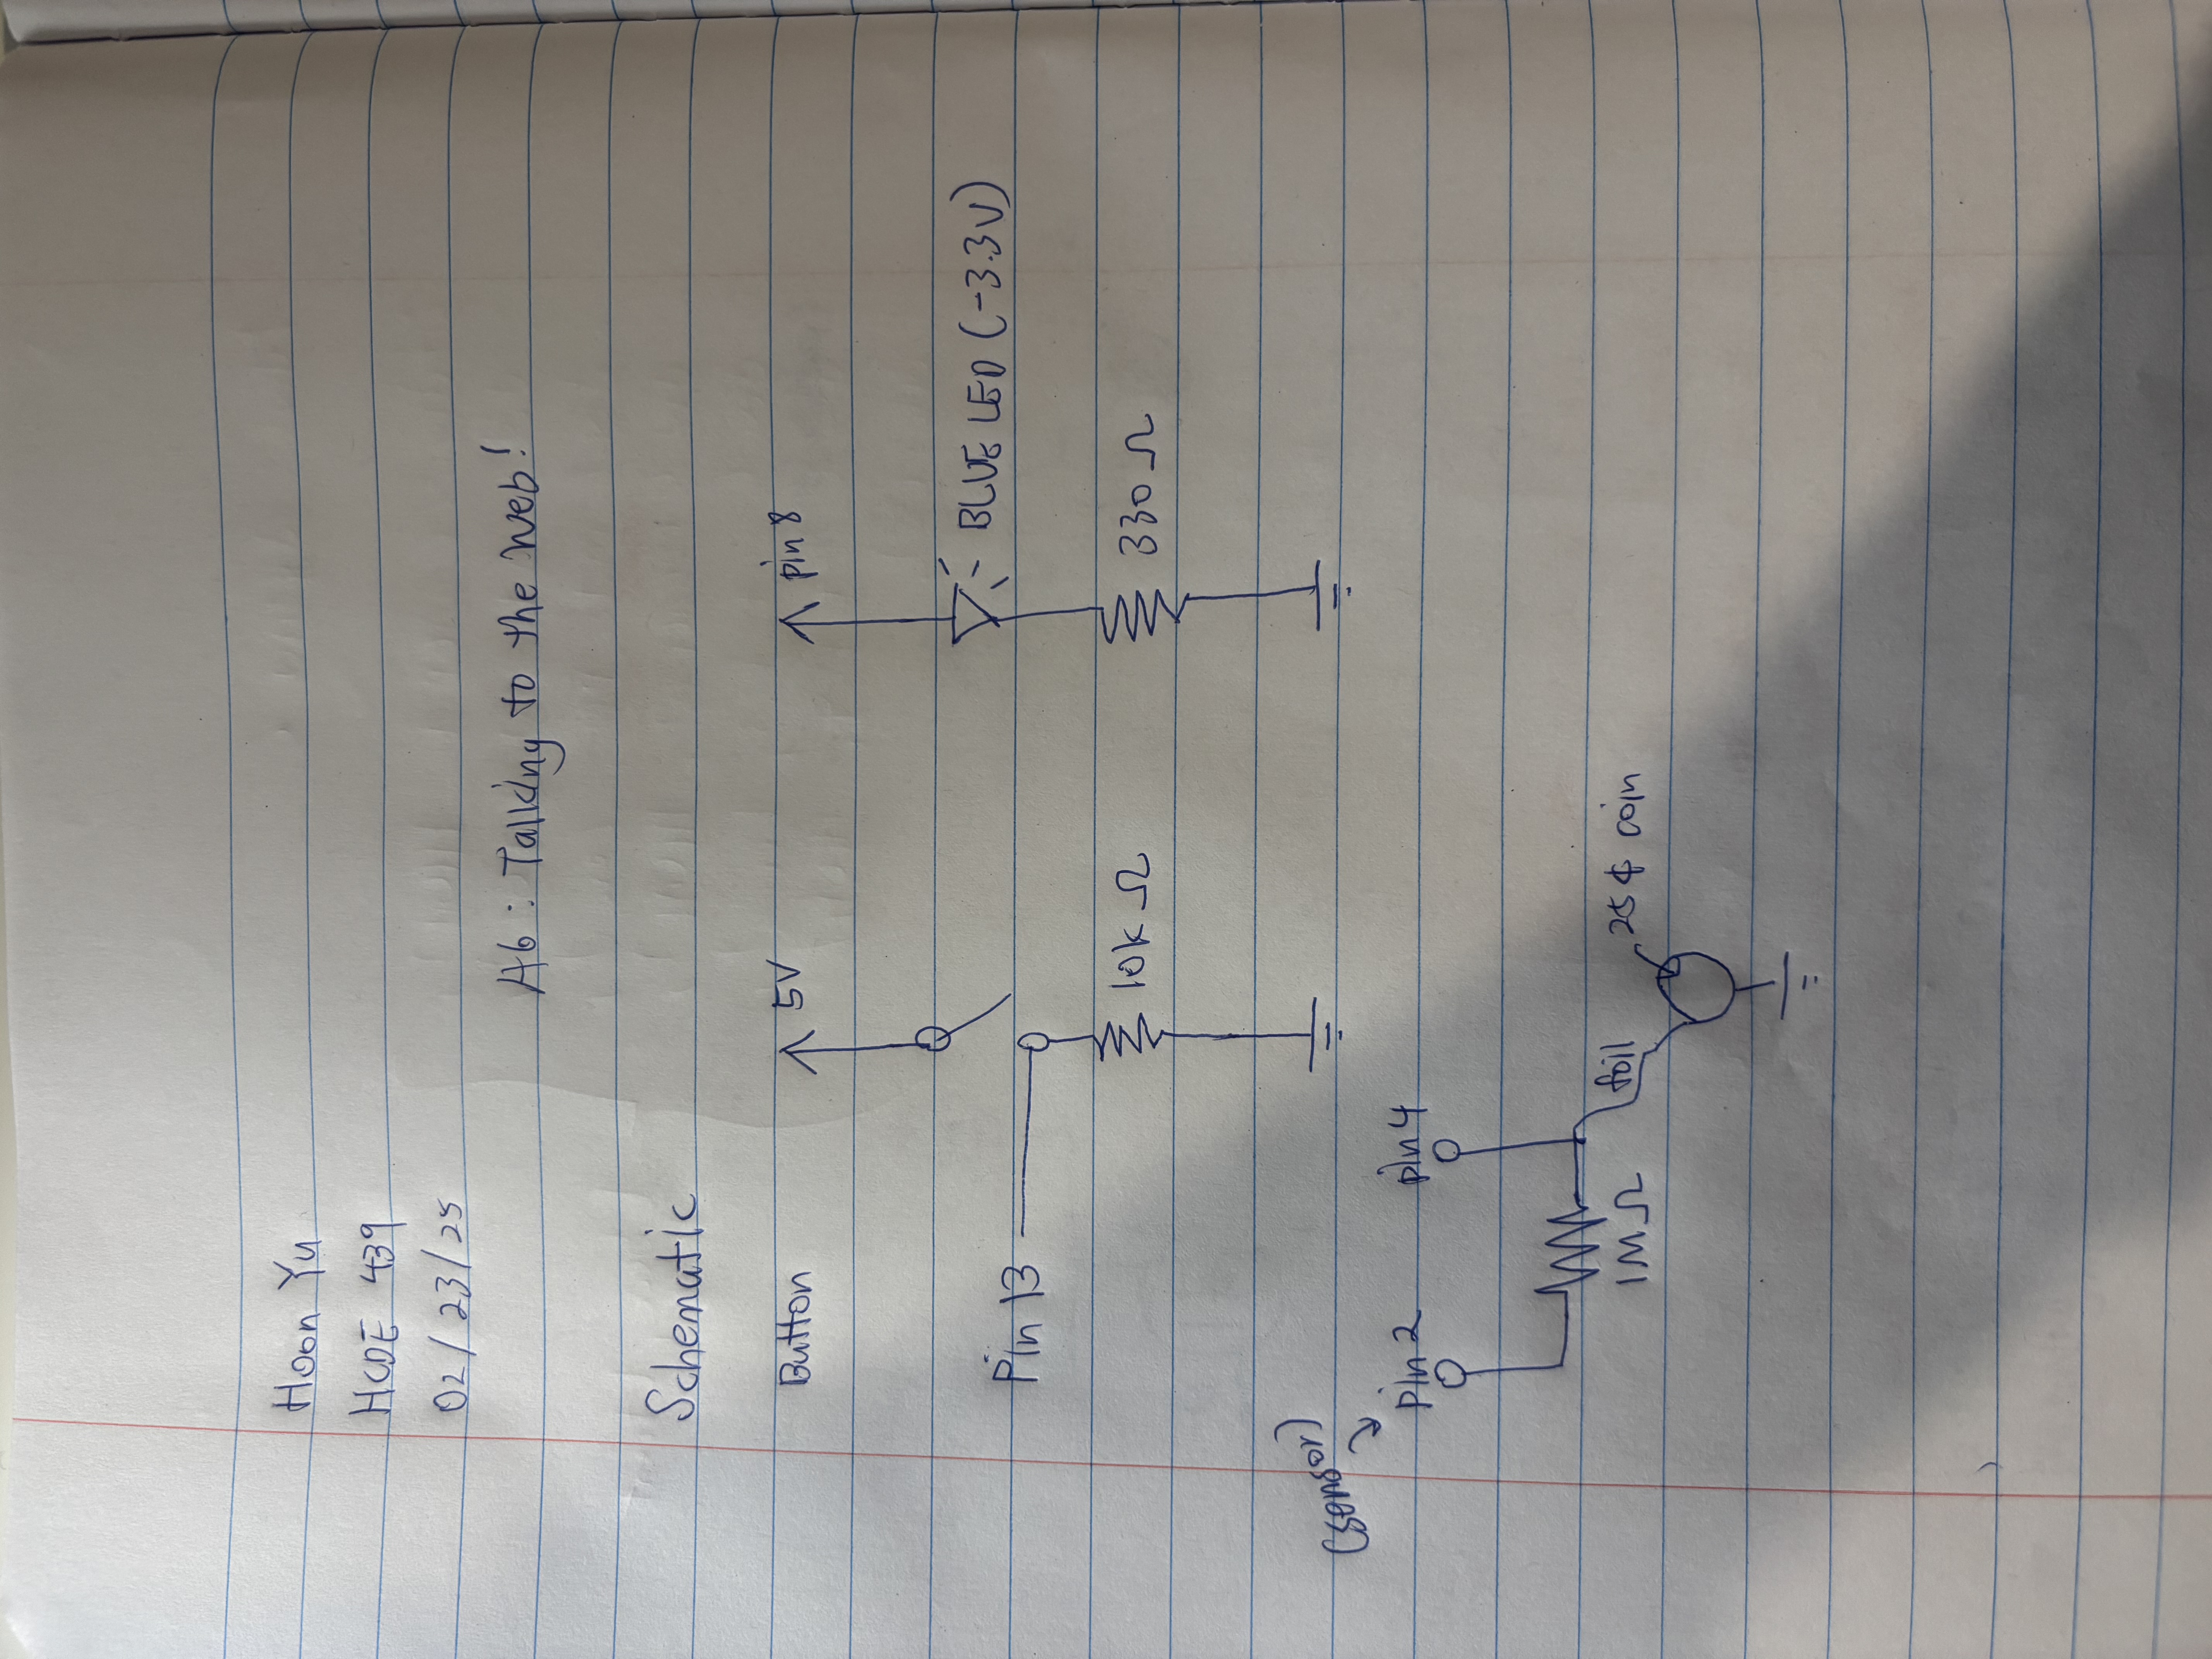 Hoon Yu
HCDE 439
02/23/25
A6: Talking to the Web!
Schematic
Button
5V
pin 8
BLUE LED (-3.3V)
Pin 13
10k Ω
330 Ω
(sensor)
pin 2
pin 4
1M Ω
foil
25¢ coin